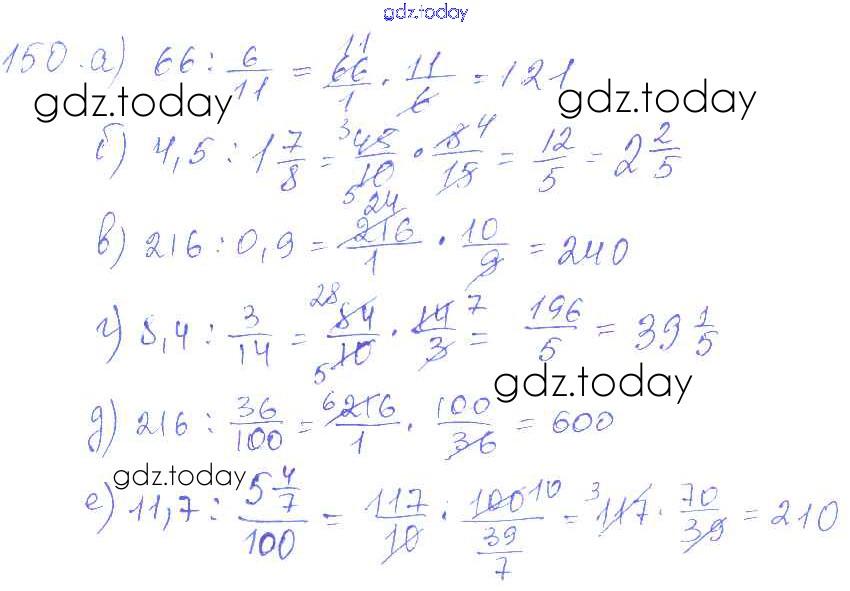 gdz.today
150. а) 66 : 6/11 = 66/1 · 11/6 = 121
11
gdz.today gdz.today
б) 4,5 : 1 7/8 = 45/10 · 8/15 = 12/5 = 2 2/5
3 4
5
в) 216 : 0,9 = 216/1 · 10/9 = 240
24
г) 8,4 : 3/14 = 84/10 · 14/3 = 196/5 = 39 1/5
28 7
5
gdz.today
д) 216 : 36/100 = 216/1 · 100/36 = 600
6
gdz.today
е) 11,7 : 5 4/7/100 = 117/10 · 100/39/7 = 117 · 70/39 = 210
10 3